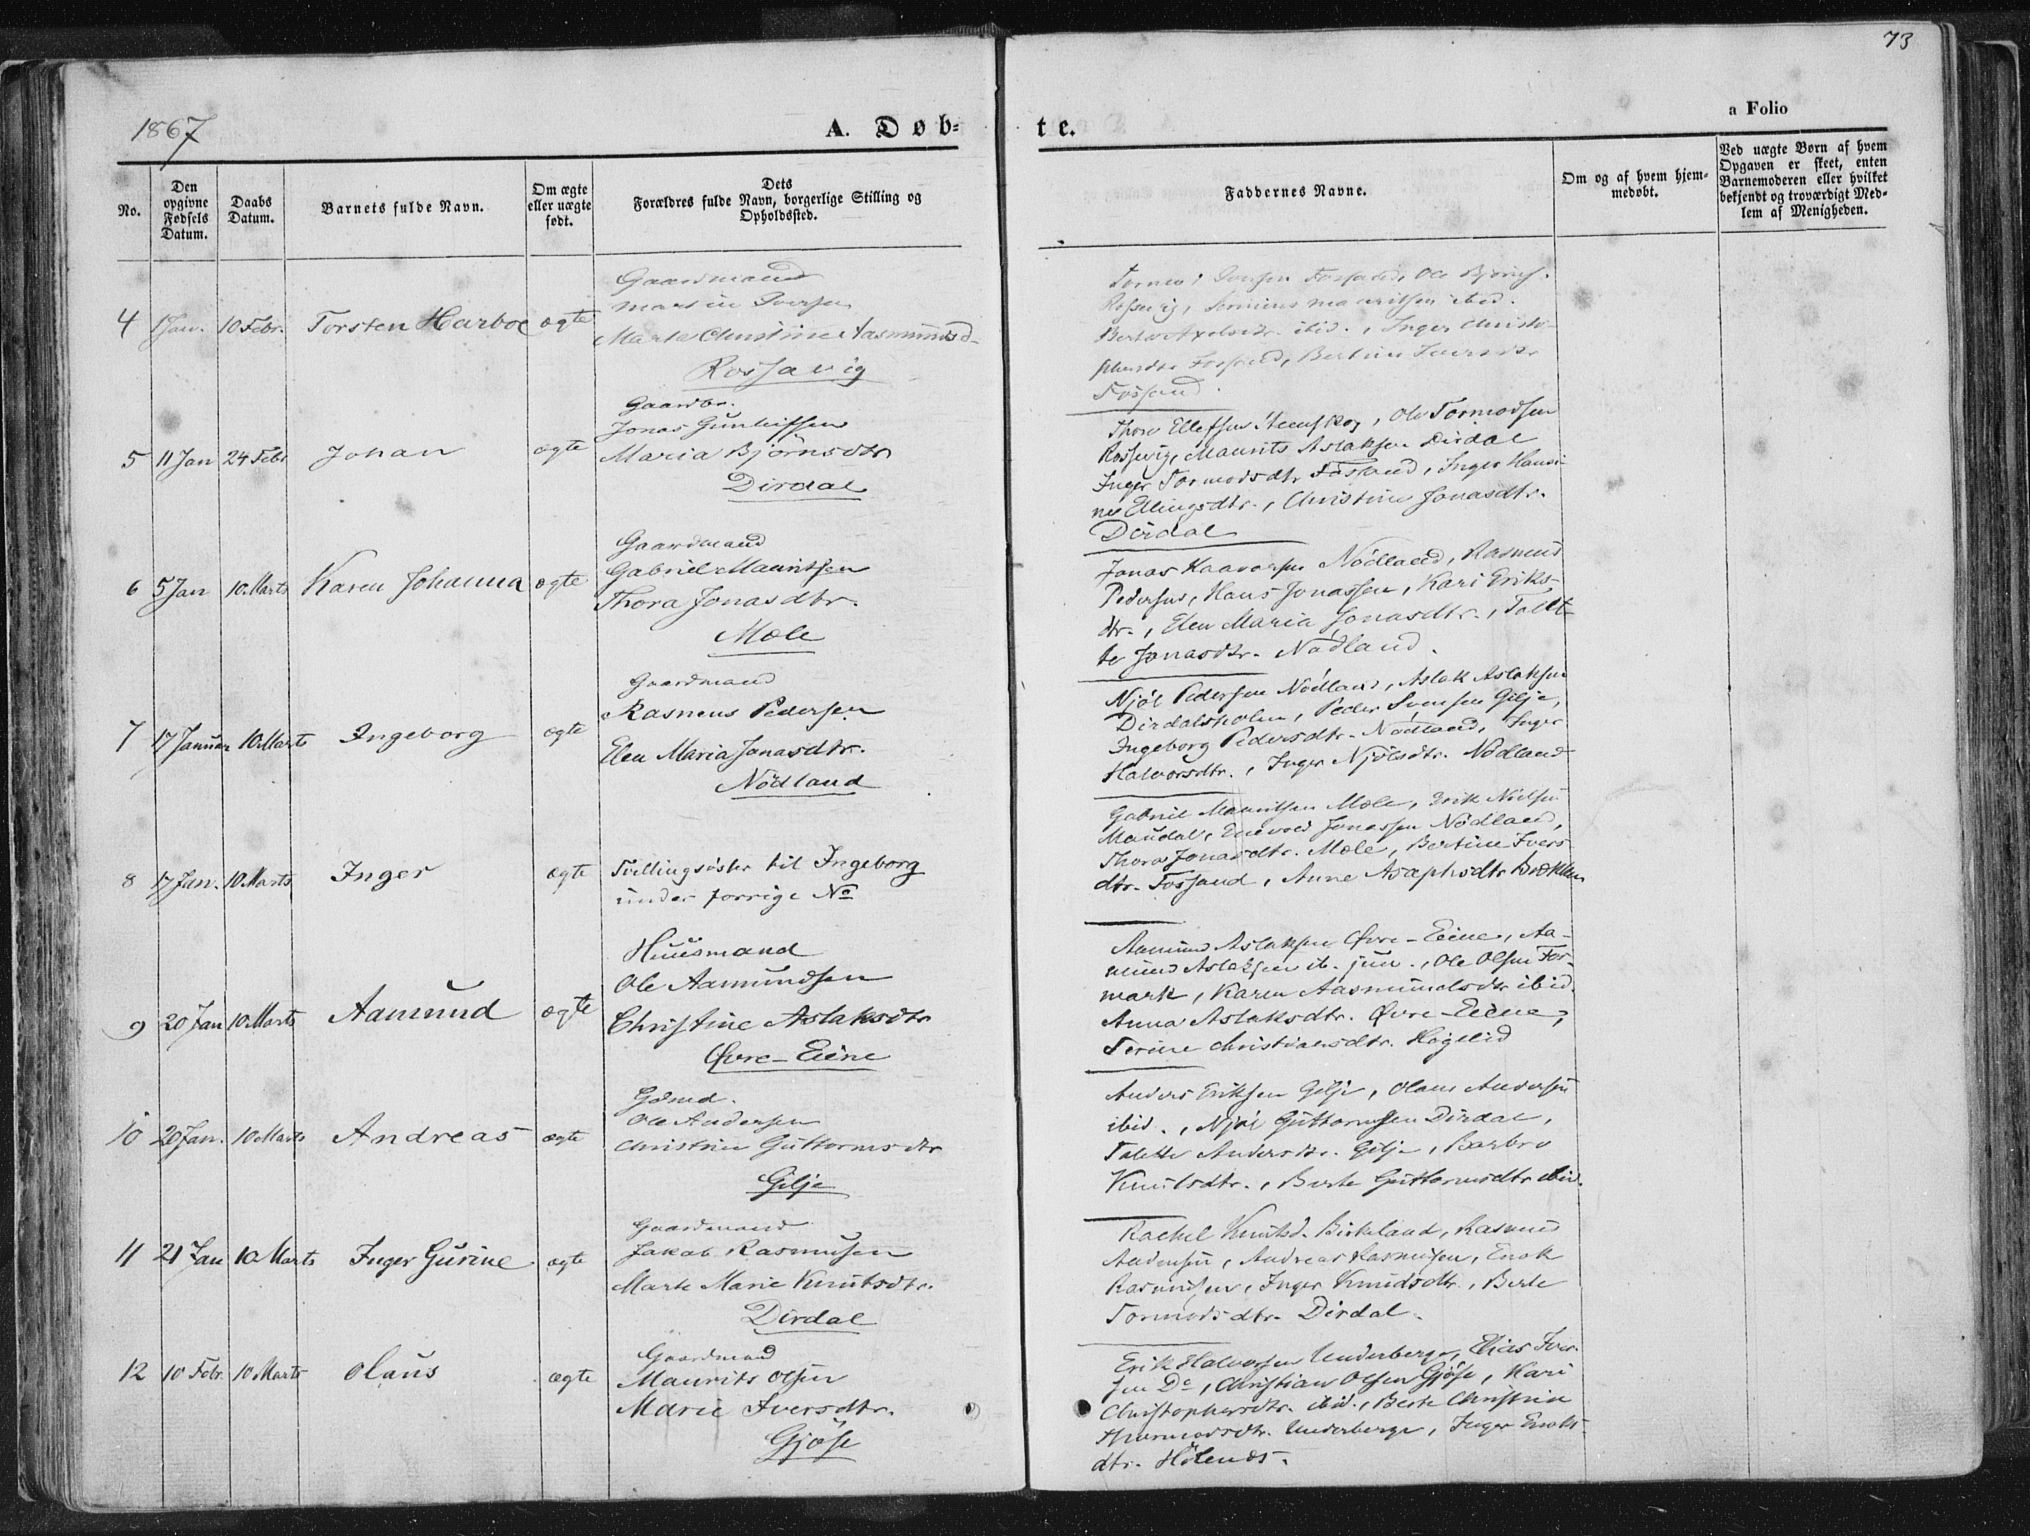 73
1867
A. Døb-
te.
a Folio
No.
Den opgivne Fødsels Datum.
Daabs Datum.
Barnets fulde Navn.
Om ægte eller uægte født.
Dets Forældres fulde Navn, borgerlige Stilling og Opholdssted.
Faddernes Navne.
Om og af hvem hjemmedøbt.
Ved uægte Børn af hvem Opgaven er skeet, enten Barnemoderen eller hvilket bekjendt og troværdigt Medlem af Menigheden.
4 1 Jan. 10 Febr. Torsten Harboe ægte
Gaardmand
Martin Iversen
Marta Christine Aasmundsd-
Rossavig
Iversen Fossand, Ole Bjørns.
Rossavig, Mauritsen ibid.
Berta Axelsdr. ibid., Inger Christo-
phersdr Fossand, Bertine Iversdr.
Fossand
5 11 Jan 24 Febr Johan ægte
Gaardbr.
Jonas Gunleifssen
Maria Bjørnsdtr
Dirdal
Thore Ellefsen, Ole Tormodsen
Rossevig, Maurits Aslaksen Dirdal
Inger Tormodsdtr Fossand, Inger Hansi-
ne Ellingsdtr., Christine Jonasdtr.
Dirdal
6 5 Jan 10 Marts Karen Johanna ægte
Gaardmand
Gabriel Mauritsen
Thora Jonasdtr.
Mæle
Jonas Haavorsen Nødland, Rasmus
Pedersen, Hans Jonassen, Kari Eriks-
dtr., Elen Maria Jonasdtr., Tollt-
te Jonasdtr. Nødland.
7 17 Januar 10 Marts Ingeborg ægte
Gaardmand
Rasmus Pedersen
Elen Maria Jonasdtr.
Nødland
Njøl Pedersen Nødland, Aslak Aslaksen
Dirdalsholen, Peder Svensen Gilje,
Ingeborg Pedersdtr. Nødland, Inger
Halvorsdtr., Inger Njølsdtr. Nødland
8 17 Jan. 10 Marts Inger ægte
Tvillingsøster til Ingeborg
under forrige No
Gabriel Mauritsen Mæle, Erik Nielsen
Maudal, Enevold Jonassen Nødland,
Thora Jonasdtr. Mæle, Bertine Ivers
dtr. Fossand, Anne Asaphsdtr Brekken
9 20 Jan 10 Marts Aamund ægte
Huusmand
Ole Aamundsen
Christine Aslaksdtr
Øvre-Eiene
Aamund Aslaksen Øvre-Eiene, Aa-
mund Aslaksen ib. jun., Ole Olsen For-
mark, Karen Aasmundsdtr ibid.
Anna Aslaksdtr. Øvre-Eiene,
Serine Christiansdtr. Høgelid
10 20 Jan. 10 Marts Andreas ægte
Gdmd.
Ole Andersen
Christine Guttormsdtr
Gilje
Anders Eriksen Gilje, Olaus Andersen
ibid., Njøl Guttormsen Dirdal,
Talette Andersdtr. Gilje, Barbro
Knutsdtr., Berte Guttormsdtr ibid.
11 21 Jan 10 Marts Inger Gurine ægte
Gaardmand
Jakob Rasmusen
Marte Marie Knutsdtr.
Dirdal
Rachel Knutsd. Birkeland, Rasmus
Andersen, Andreas Rasmusen, Enok
Rasmusen, Inger Knudsdtr., Berte
Tormodsdtr. Dirdal.
12 10 Febr. 10 Marts Olaus ægte
Gaardmand
Maurits Olsen
Marie Iversdtr.
Gjøse
Erik Halvorsen Underberge, Elias Iver-
sen Do, Christian Olsen Gjøse, Kari
Christophersdtr. ibid., Berte Christine
Thormodsdtr. Underberge, Inger Enoks-
dtr. Hølends.